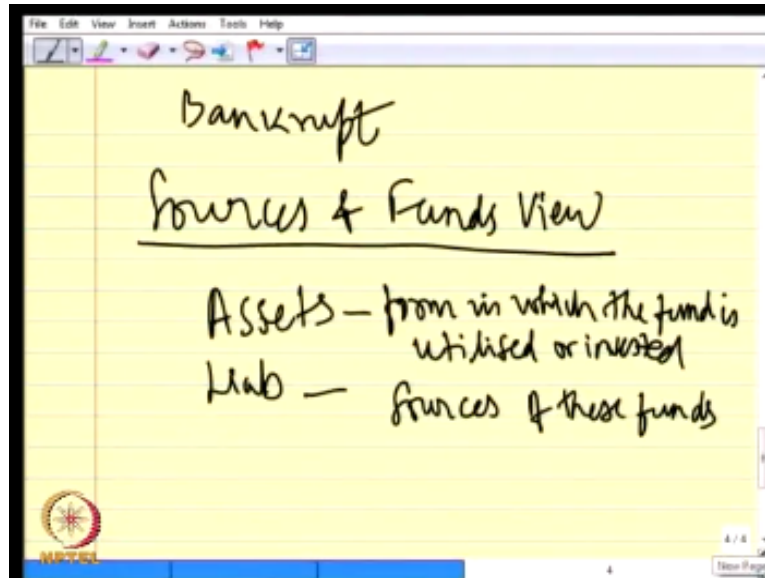 File Edit View Insert Actions Tools Help
Bankrupt
Sources & Funds View
Assets – form in which the fund is
utilised or invested
Liab – Sources of these funds
NPTEL
4 / 4
4
New Page